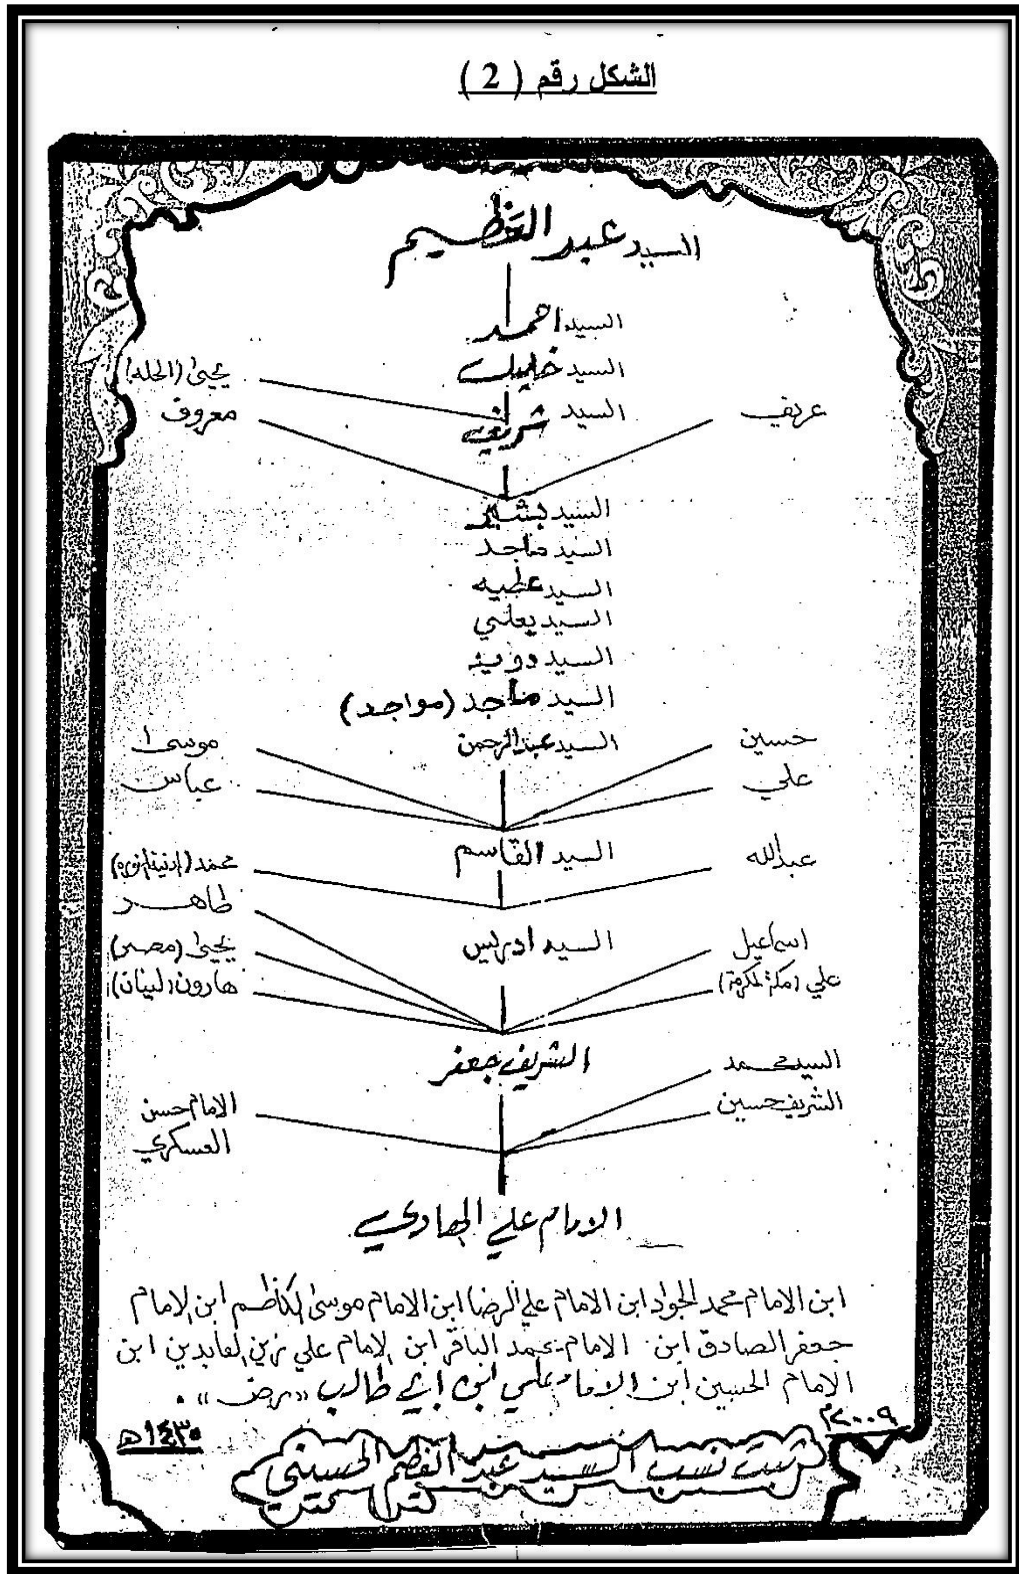 الشكل رقم ( 2 )
السيد عبد العظيم
السيد احمد
السيد خليل
يحيى (الحله)
السيد شريف
معروف
عريف
السيد بشير
السيد ماجد
السيد عطيه
السيد يعلي
السيد دويد
السيد ماجد (مواجد)
السيد عبدالرحمن
حسين
موسى
علي
عباس
السيد القاسم
عبدالله
محمد
طاهر
السيد ادريس
اسماعيل
يحيى (مصر)
علي (مكة المكرمة)
هارون (لبنان)
الشريف جعفر
السيد محمد
الشريف حسين
الامام حسن
العسكري
الامام علي الهادي
ابن الامام محمد الجواد ابن الامام علي الرضا ابن الامام موسى الكاظم ابن الامام
جعفر الصادق ابن الامام محمد الباقر ابن الامام علي زين العابدين ابن
الامام الحسين ابن الامام علي ابن ابي طالب
٢٠٠٩م
١٤٣٠هـ
ثبت نسب السيد عبد العظيم الحسيني